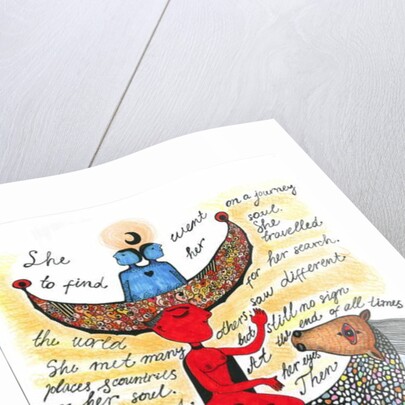 She went on a journey
to find her soul.
She travelled
the world for her search.
She met many others, saw different
places & countries but still no sign
her soul. At the end of all times
her eyes.
Then